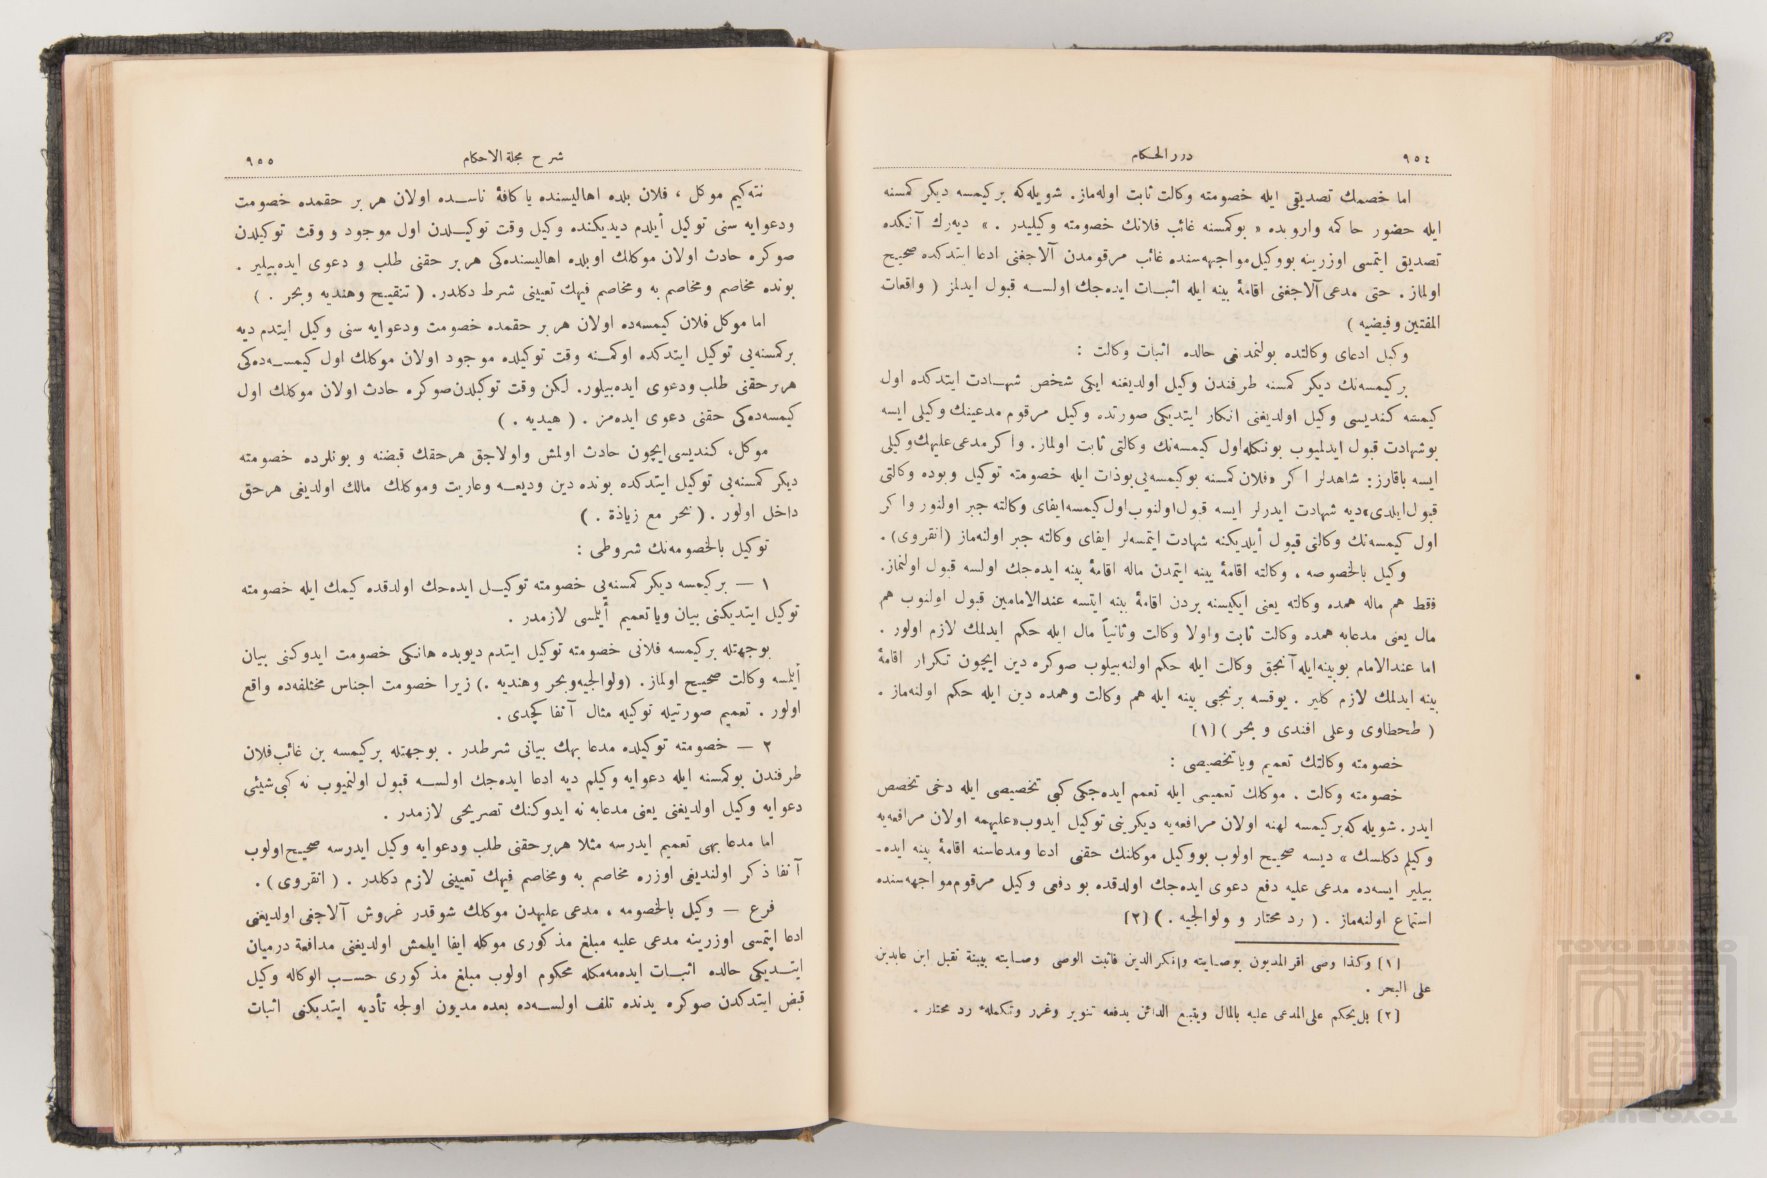 ٩٥٤
درر الحكام
اما خصمك تصديقی ايله خصومته وكالت ثابت اولەماز. شويلەكه بركيمسه ديكر كمسنه
ايله حضور حاكمه واروبده « بوكمسنه غائب فلانك خصومته وكيليدر . » ديەرك آنكده
تصديق ايتمسی اوزرينه بووكيل مواجهەسنده غائب مرقومدن آلاجغنی ادعا ايتدكده صحيح
اولماز . حتی مدعی آلاجغنی اقامۀ بينه ايله اثبات ايدەجك اولسه قبول ايدلمز ( واقعات
المفتين وفيضيه )
وكيل ادعای وكالتده بولنمدغی حالده اثبات وكالت :
بركيمسەنك ديكر كمسنه طرفندن وكيل اولديغنه ايكی شخص شهادت ايتدكده اول
كيمسه كنديسی وكيل اولديغنی انكار ايتديكی صورتده وكيل مرقوم مدعينك وكيلی ايسه
بوشهادت قبول ايدلميوب بونكله اول كيمسەنك وكالتی ثابت اولماز. واكر مدعی عليهك وكيلی
ايسه باقارز: شاهدلر اكر «فلان كمسنه بوكيمسەيی بوذات ايله خصومته توكيل وبوده وكالتی
قبول ايلدی» ديه شهادت ايدرلر ايسه قبول اولنوب اول كيمسه ايفای وكالته جبر اولنور واكر
اول كيمسەنك وكالتی قبول أيلديكنه شهادت ايتمسەلر ايفای وكالته جبر اولنەماز (انقروی) .
وكيل بالخصومه ، وكالته اقامۀ بينه ايتمدن ماله اقامۀ بينه ايدەجك اولسه قبول اولنماز.
فقط هم ماله همده وكالته يعنی ايكيسنه بردن اقامۀ بينه ايتسه عندالامامين قبول اولنوب هم
مال يعنی مدعابه همده وكالت ثابت واولا وكالت وثانياً مال ايله حكم ايدلمك لازم اولور .
اما عندالامام بوبينەايله آنجق وكالت ايله حكم اولنەبيلوب صوكره دين ايچون تكرار اقامۀ
بينه ايدلمك لازم كلير . يوقسه برنجی بينه ايله هم وكالت وهمده دين ايله حكم اولنەماز .
( طحطاوی وعلی افندی و بحر ) [١]
خصومته وكالتك تعميم وياتخصيصی :
خصومته وكالت ، موكلك تعميمی ايله تعمم ايدەجكی كبی تخصيصی ايله دخی تخصص
ايدر. شويلەكه بركيمسه لهنه اولان مرافعەيه ديكرينی توكيل ايدوب «عليهمه اولان مرافعەيه
وكيلم دكلسك » ديسه صحيح اولوب بووكيل موكلنك حقنی ادعا ومدعاسنه اقامۀ بينه ايدە-
بيلير ايسەده مدعی عليه دفع دعوی ايدەجك اولدقده بو دفعی وكيل مرقوم مواجهەسنده
استماع اولنەماز . ( رد محتار و ولوالجيه . ) [٢]
[١] وكذا وصی اقرالمديون بوصايته وانكرالدين فاثبت الوصی وصايته ببينة تقبل ابن عابدين
علی البحر .
[٢] بل يحكم علی المدعی عليه بالمال ويتبع الدائن بدفعه تنوير وغرر وتكمله* رد محتار .
شرح مجلة الاحكام
٩٥٥
نتەكيم موكل ، فلان بلده اهاليسنده ياكافۀ ناسده اولان هر بر حقمده خصومت
ودعوايه سنی توكيل أيلدم ديديكنده وكيل وقت توكيلدن اول موجود و وقت توكيلدن
صوكره حادث اولان موكلك اوبلده اهاليسندەكی هر بر حقنی طلب و دعوی ايدەبيلير .
بونده مخاصم ومخاصم به ومخاصم فيهك تعيينی شرط دكلدر. ( تنقيح وهنديه وبحر . )
اما موكل فلان كيمسەده اولان هر بر حقمده خصومت ودعوايه سنی وكيل ايتدم ديه
بركمسنەيی توكيل ايتدكده اوكمسنه وقت توكيلده موجود اولان موكلك اول كيمسەدەكی
هربرحقنی طلب ودعوی ايدەبيلور. لكن وقت توكيلدن صوكره حادث اولان موكلك اول
كيمسەدەكی حقنی دعوی ايدەمز . ( هيديه . )
موكل، كنديسی ايچون حادث اولمش واولاجق هرحقك قبضنه و بونلرده خصومته
ديكر كمسنەيی توكيل ايتدكده بونده دين وديعه وعاريت وموكلك مالك اولديغی هرحق
داخل اولور . ( بحر مع زيادة . )
توكيل بالخصومەنك شروطی :
١ — بركيمسه ديكر كمسنەيی خصومته توكيل ايدەجك اولدقده كيمك ايله خصومته
توكيل ايتديكنی بيان وياتعميم أيلمسی لازمدر .
بوجهتله بركيمسه فلانی خصومته توكيل ايتدم ديوبده هانكی خصومت ايدوكنی بيان
أيلمسه وكالت صحيح اولماز. (ولوالجيه وبحر وهنديه .) زيرا خصومت اجناس مختلفەده واقع
اولور . تعميم صورتيله توكيله مثال آنفا كچدی .
٢ — خصومته توكيلده مدعا بهك بيانی شرطدر . بوجهتله بركيمسه بن غائب فلان
طرفندن بوكمسنه ايله دعوايه وكيلم ديه ادعا ايدەجك اولسه قبول اولنميوب نه كبی شيئی
دعوايه وكيل اولديغنی يعنی مدعابه نه ايدوكنك تصريحی لازمدر .
اما مدعا بهی تعميم ايدرسه مثلا هربرحقنی طلب ودعوايه وكيل ايدرسه صحيح اولوب
آنفا ذكر اولنديغی اوزره مخاصم به ومخاصم فيهك تعيينی لازم دكلدر . ( انقروی ) .
فرع — وكيل بالخصومه ، مدعی عليهدن موكلك شوقدر غروش آلاجغی اولديغنی
ادعا ايتمسی اوزرينه مدعی عليه مبلغ مذكوری موكله ايفا ايلمش اولديغنی مدافعة درميان
ايتديكی حالده اثبات ايدەمەمكله محكوم اولوب مبلغ مذكوری حسب الوكاله وكيل
قبض ايتدكدن صوكره يدنده تلف اولسەده بعده مديون اولجه تأديه ايتديكنی اثبات